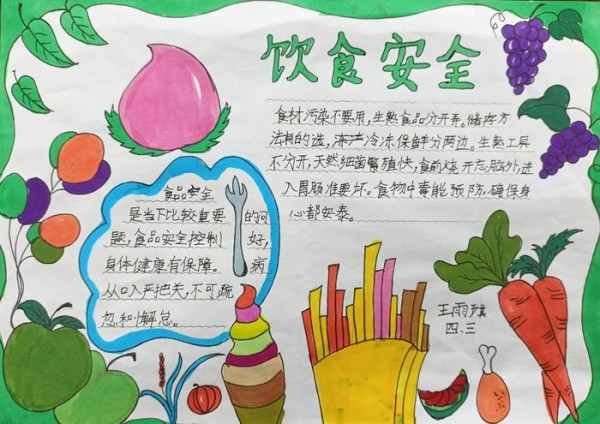 饮食安全
食材污染不要用,生熟食品分开弄。储存方
法耐的选,冻产冷冻保鲜分两边。生熟工具
不分开,天然细菌繁殖快,食前烧开忘脑外,进
入胃肠准要坏。食物中毒能预防,确保身
心都安泰。
食品安全
是当下比较重要的问
题,食品安全控制好,
身体健康有保障。病
从口入严把关,不可疏
忽和懈怠。
王雨
四、三